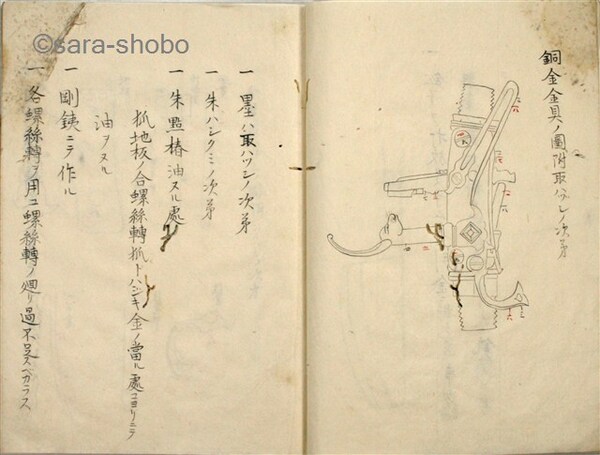 銅金金具ノ圖附取ハヅシノ次第
一 墨ハ取ハツシノ次第
一 朱ハシクミノ次第
一 朱點椿油スル處
地板ノ合螺絲轉 トハシキ金ノ當ル處ヨリニテ
油ヲヌル
一 剛銕ニテ作ル
一 各螺絲轉ヲ用ユ螺絲轉ノ廻リ過不足スベカラス
©sara-shobo